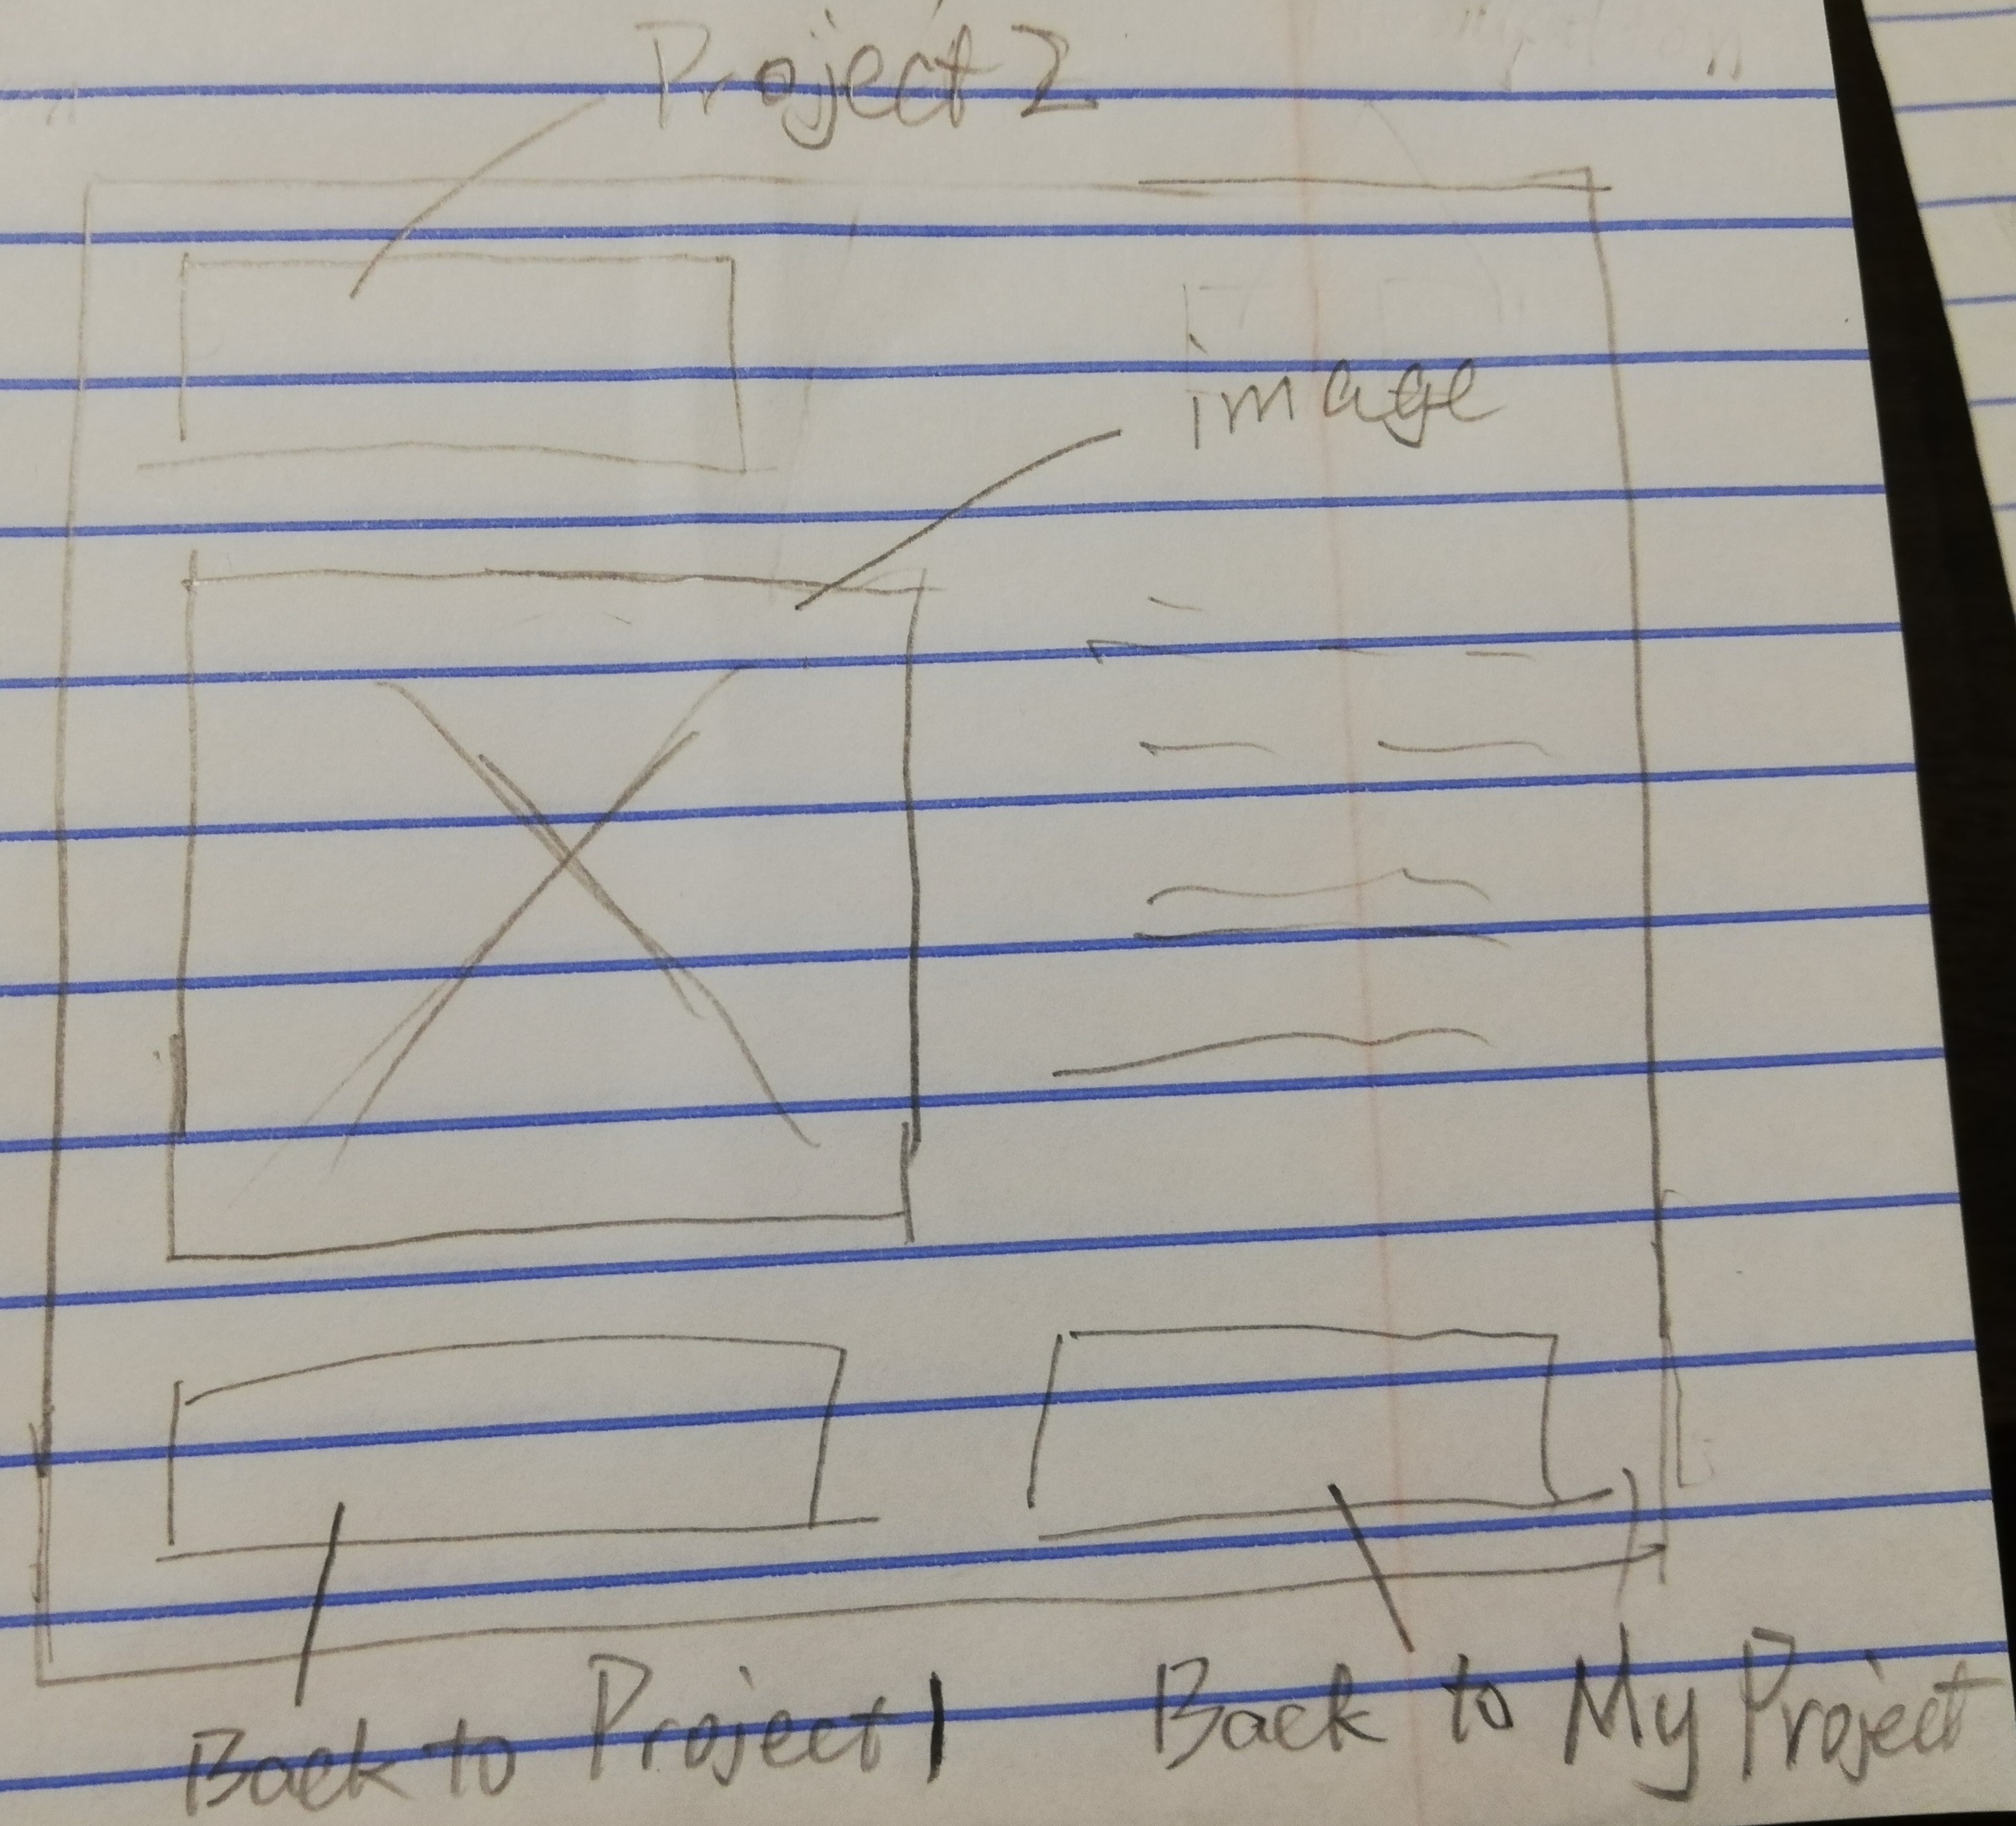 Project 2
image
Back to Project 1
Back to My Project